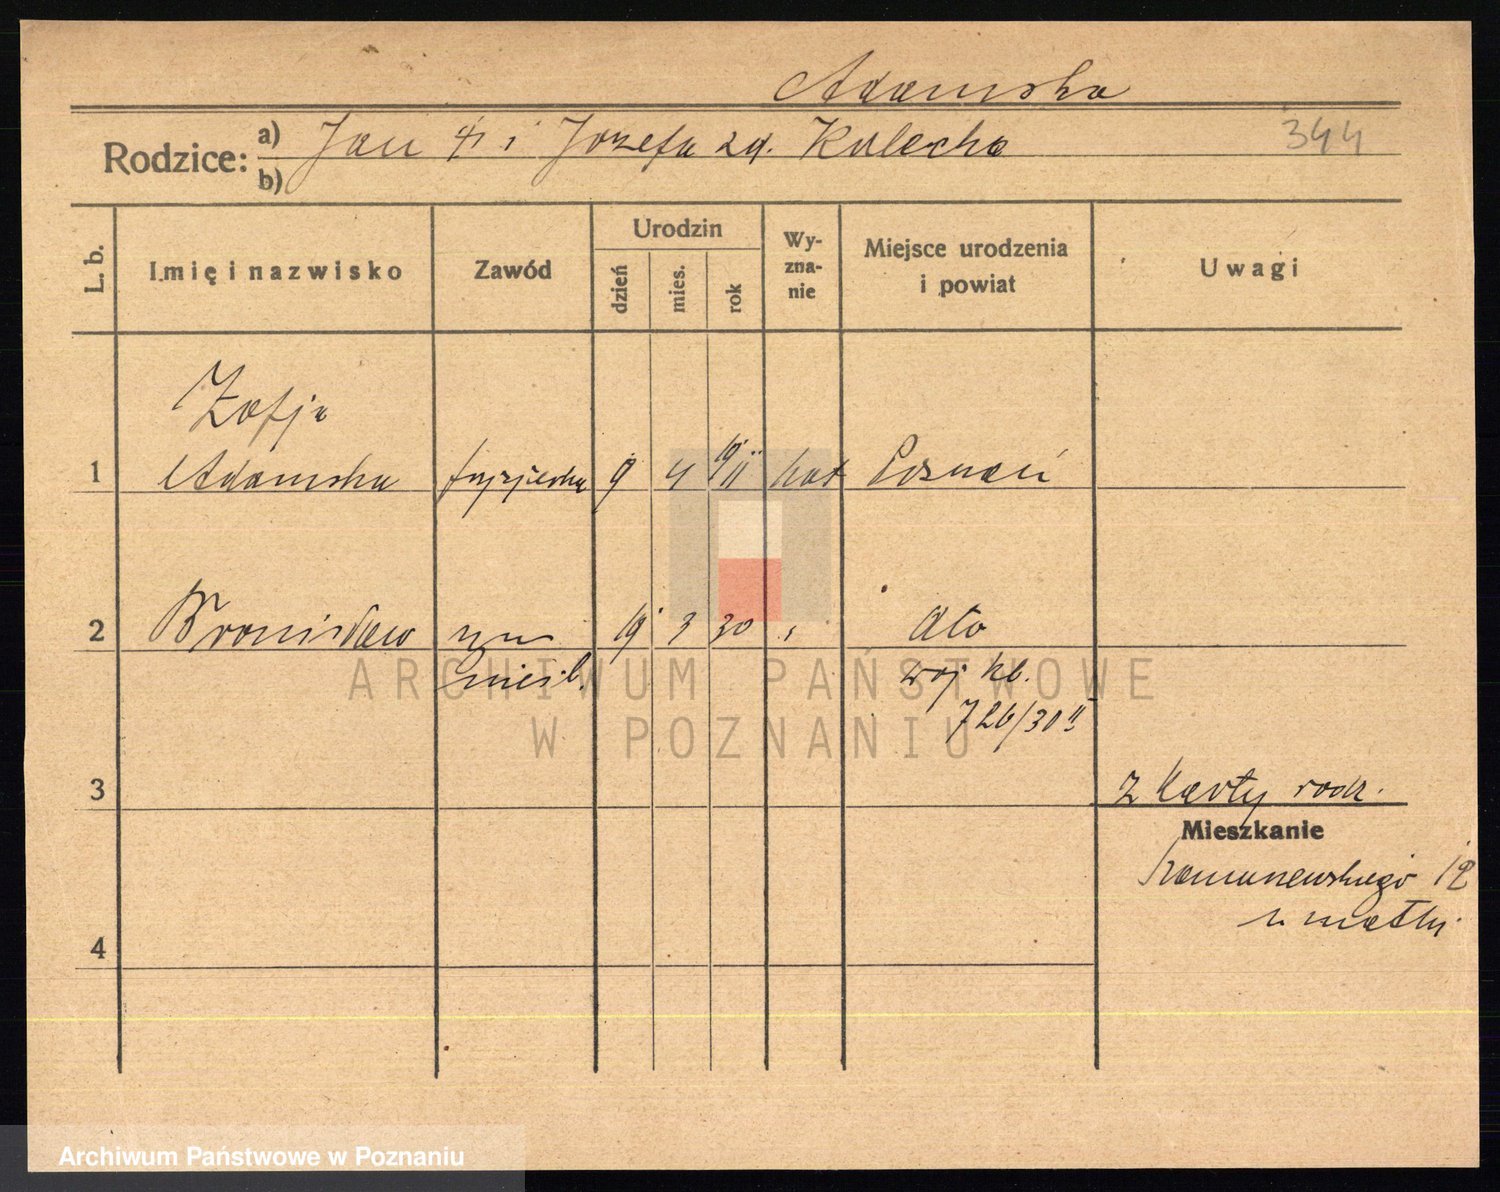 Adamska
Rodzice: a) Jan i Józefa zd. Kulecka 344
b)
L. b. Imię i nazwisko Zawód Urodzin dzień mies. rok Wyznanie Miejsce urodzenia i powiat Uwagi
Zofja
1 Adamska fryzjerka 9 4 1911 kat Poznań
2 Bronisław syn 19 3 30 " dto
nieśl. woj kl.
726/30 II
3 z karty rodz.
Mieszkanie
12
u matki
4
ARCHIWUM PAŃSTWOWE
W POZNANIU
Archiwum Państwowe w Poznaniu